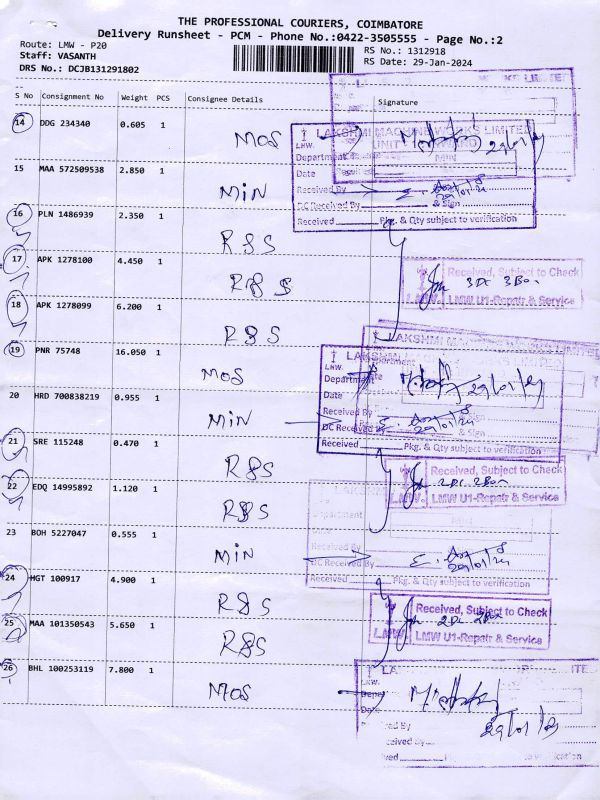 THE PROFESSIONAL COURIERS, COIMBATORE
Delivery Runsheet - PCM - Phone No.:0422-3505555 - Page No.:2
Route: LMW - P20
RS No.: 1312918
Staff: VASANTH
RS Date: 29-Jan-2024
DRS No.: DCJB131291802
S No Consignment No Weight PCS Consignee Details Signature
14 DDG 234340 0.605 1 MOS
LAKSHMI MACHINE WORKS LIMITED
LMW. UNIT
Department
29/01/24
Date
15 MAA 572509538 2.850 1 MIN
Received By
29/01/24
DC Received By & Sign
Received Pkg. & Qty subject to verification
16 PLN 1486939 2.350 1 R&S
17 APK 1278100 4.450 1 R&S
Received, Subject to Check
3 DC 3 Box
LMW. LMW U1-Repair & Service
18 APK 1278099 6.200 1 R&S
LAKSHMI MACHINE WORKS LIMITED
19 PNR 75748 16.050 1 MOS
LMW.
Department
29/01/24
Date
20 HRD 700838219 0.955 1 MIN
Received By
DC Received By & Sign
29/01/24
21 SRE 115248 0.470 1 R&S
Received Pkg. & Qty subject to verification
Received, Subject to Check
22 EDQ 14995892 1.120 1 R&S
2 DC 2 Box
LMW. LMW U1-Repair & Service
Department
Date
23 BOH 5227047 0.555 1 MIN
Received By
DC Received By & Sign
29/01/24
Received Pkg. & Qty subject to verification
24 HGT 100917 4.900 1 R&S
Received, Subject to Check
2 DC 2 Box
25 MAA 101350543 5.650 1 R&S
LMW. LMW U1-Repair & Service
26 BHL 100253119 7.800 1 MOS
LMW.
Date
29/01/24